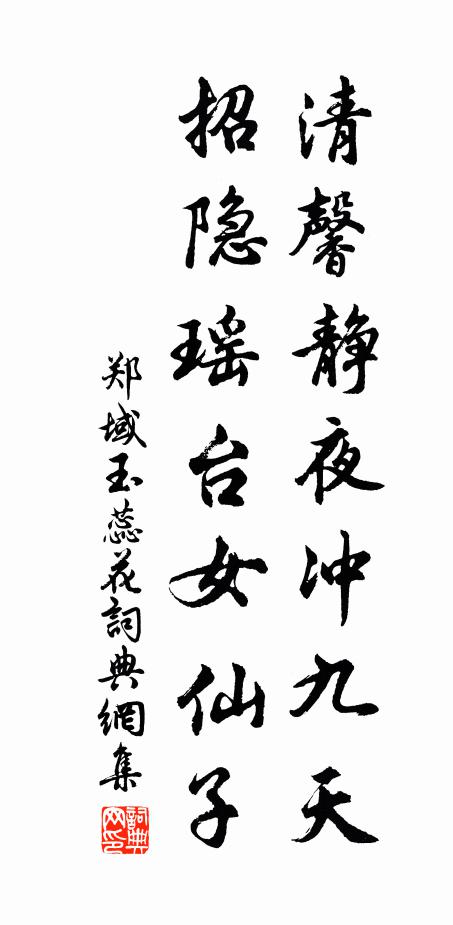 清馨静夜冲九天
招隐瑶台女仙子
郑域玉蕊花詞典網集
詞典网印